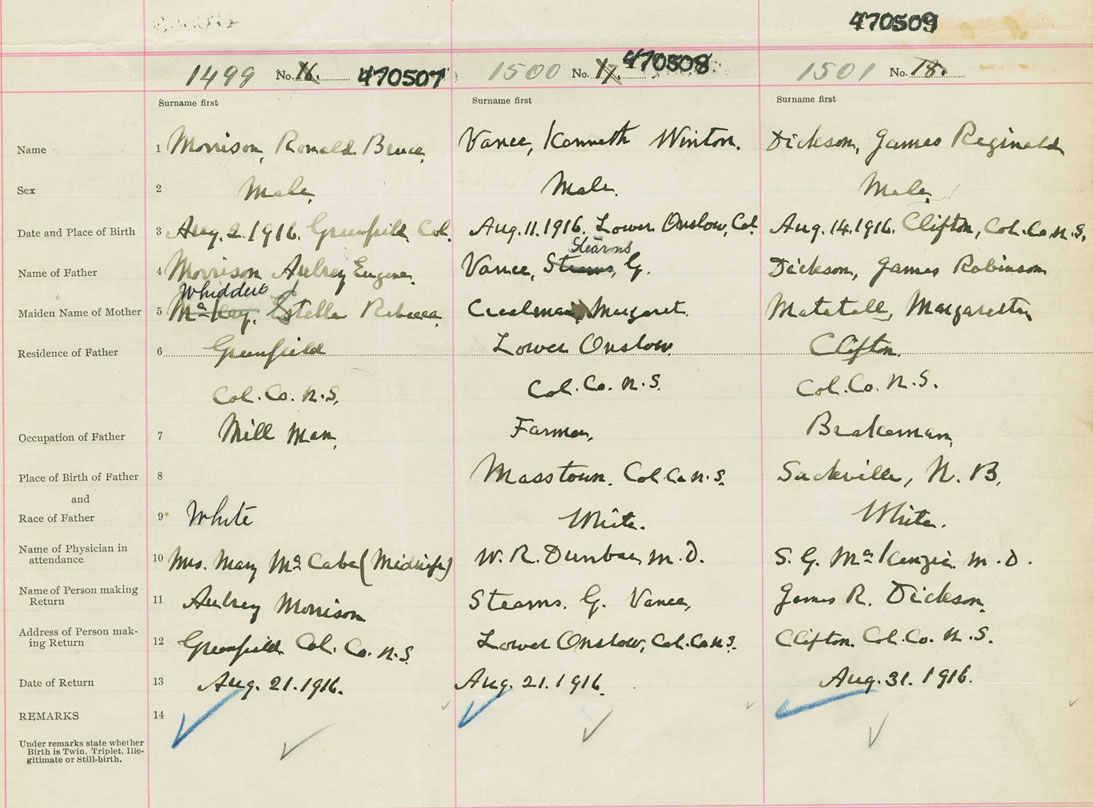 470509
1499 No. 16. 470507 1500 No. 17. 470508 1501 No. 18.
Surname first Surname first Surname first
Name 1 Morrison, Ronald Bruce, Vance, Kenneth Winton. Dickson, James Reginald
Sex 2 Male, Male. Male,
Date and Place of Birth 3 Aug. 2. 1916. Greenfield Col. Aug. 11. 1916. Lower Onslow, Col. Aug. 14. 1916. Clifton, Col. Co. N.S.
Stearns
Name of Father 4 Morrison Aubrey Eugene, Vance, Stearns, G. Dickson, James Robinson
Whidden
Maiden Name of Mother 5 McKay, Estella Rebecca, Creelman, Margaret. Matatall, Margaretta
Residence of Father 6 Greenfield Lower Onslow. Clifton.
Col. Co. N.S. Col. Co. N.S. Col. Co. N.S.
Occupation of Father 7 Mill Man, Farmer, Brakeman,
Place of Birth of Father 8 Masstown, Col. Co. N.S. Sackville, N. B,
and
Race of Father 9 White White. White.
Name of Physician in
attendance 10 Mrs. Mary McCabe (Midwife) W. R. Dunbar, M. D. S. G. McKenzie M. D.
Name of Person making
Return 11 Aubrey Morrison Stearns. G. Vance, James R. Dickson,
Address of Person mak-
ing Return 12 Greenfield Col. Co. N.S. Lower Onslow, Col. Co. N.S. Clifton Col. Co. N.S.
Date of Return 13 Aug. 21. 1916. Aug. 21. 1916. Aug. 31. 1916.
REMARKS 14
Under remarks state whether
Birth is Twin, Triplet, Ille-
gitimate or Still-birth.